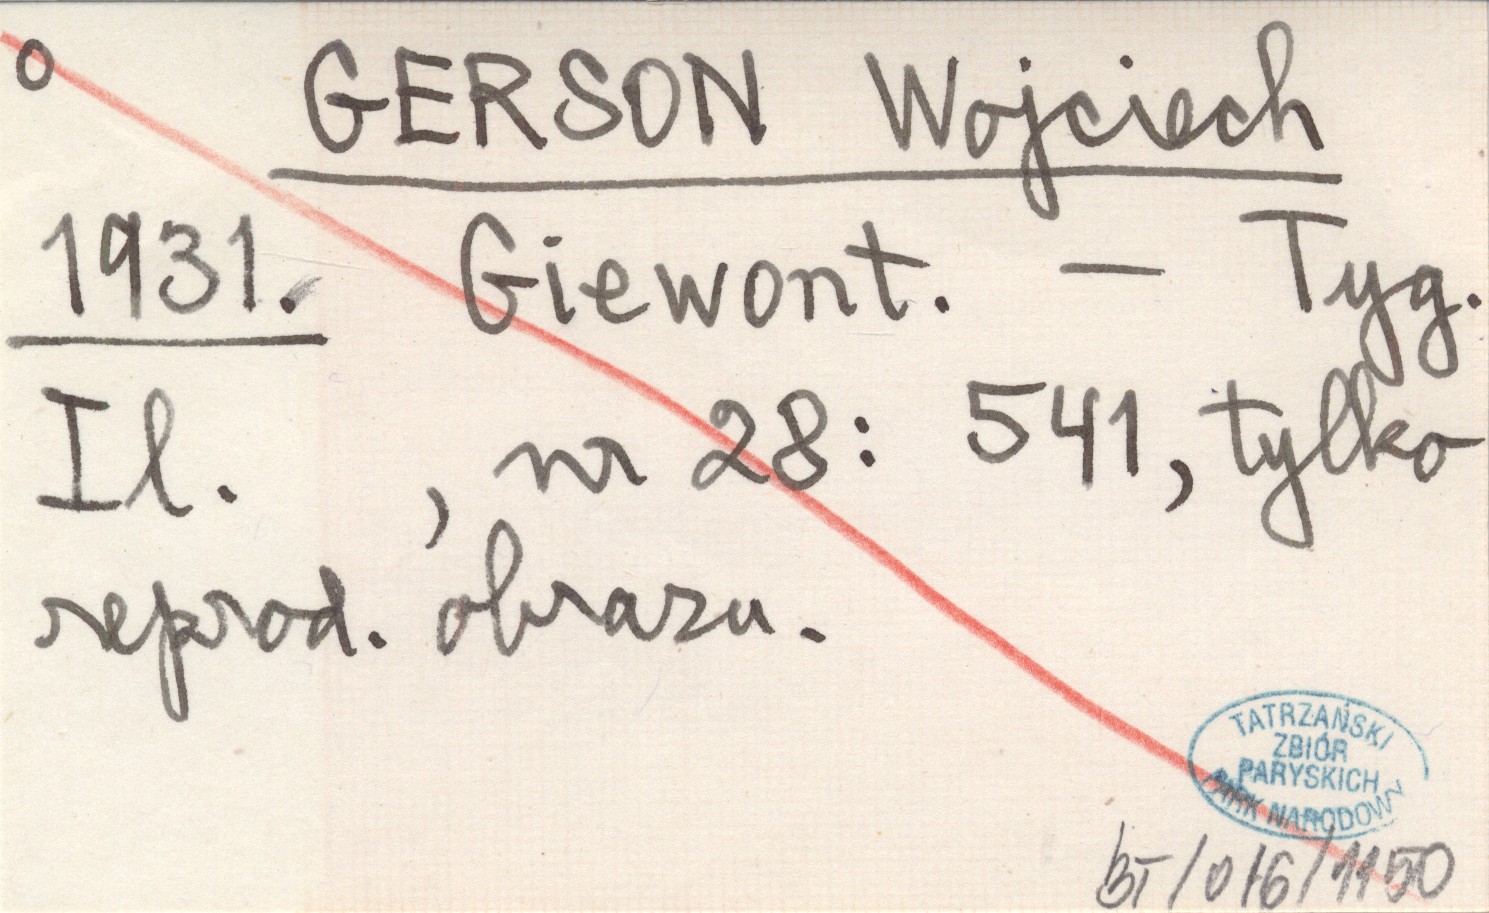 o GERSON Wojciech
1931. Giewont. — Tyg.
Il. , nr 28: 541, tylko
reprod. obrazu.
TATRZAŃSKI
ZBIÓR
PARYSKICH
PARK NARODOWY
BT/016/1150